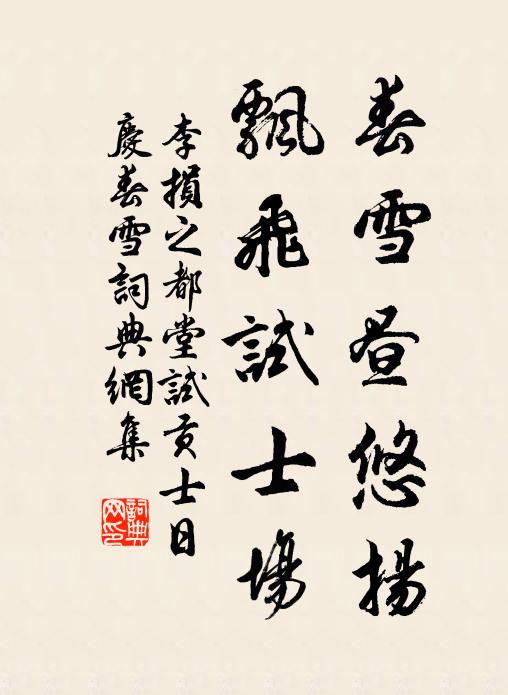 春雪昼悠揚
飄飛試士場
李損之都堂試貢士日
慶春雪詞典網集
詞典
网印